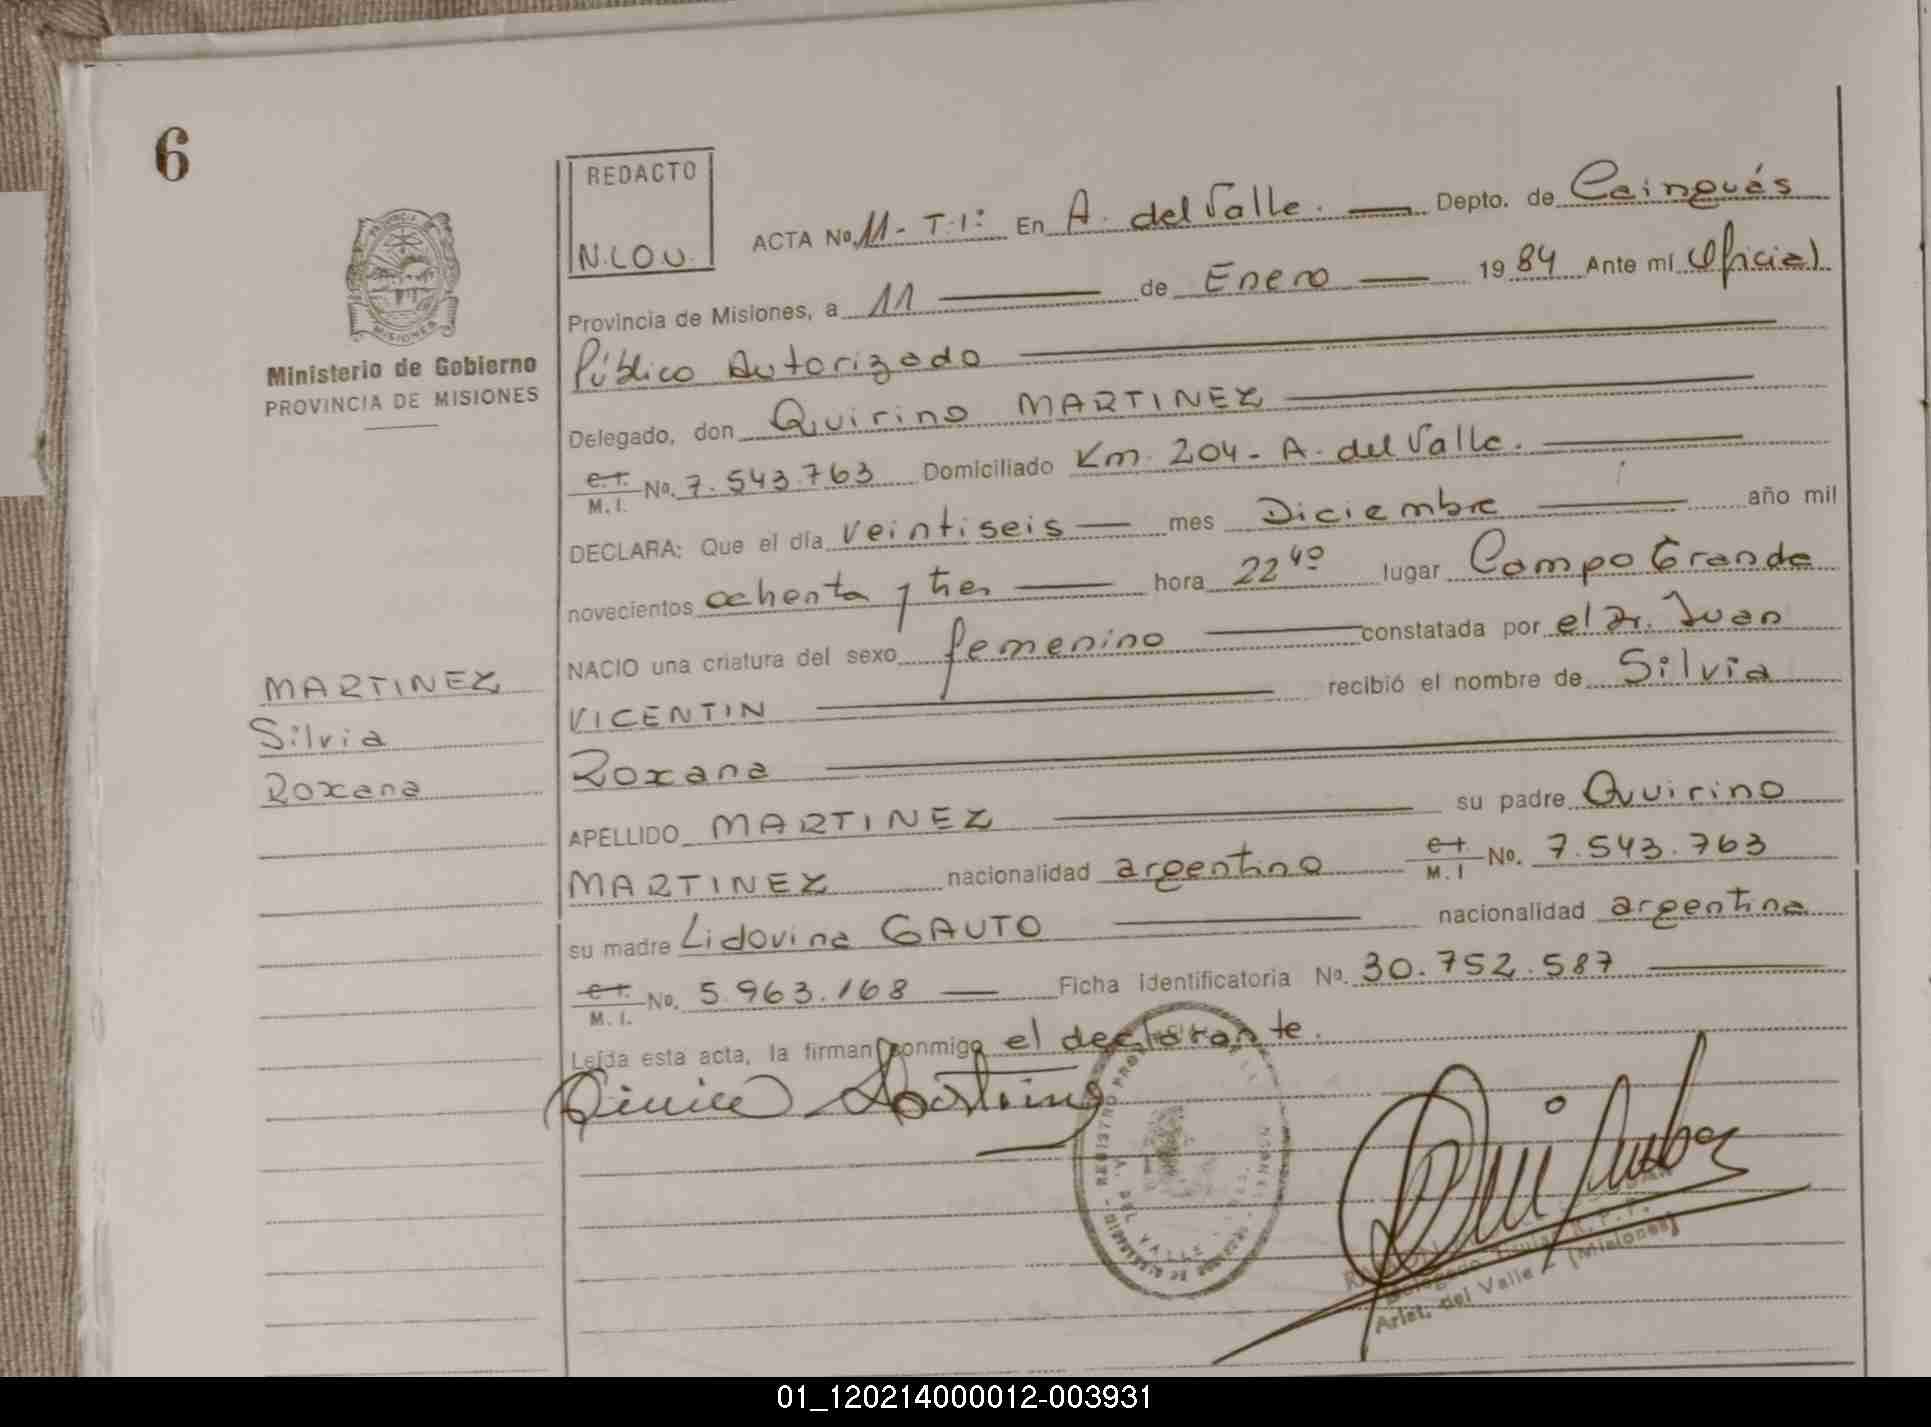 6
REDACTO
N.LOU.
PROVINCIA
MISIONES
Ministerio de Gobierno
PROVINCIA DE MISIONES
ACTA No. 11 - T.1º En A. del Valle. Depto. de Cainguás
Provincia de Misiones, a 11 de Enero 1984 Ante mí Oficial
Público Autorizado
Delegado, don Quirino MARTINEZ
C.I. M.I. No. 7.543.763 Domiciliado Km. 204 - A. del Valle.
DECLARA: Que el día veintiseis mes Diciembre año mil
novecientos ochenta y tres hora 22 40 lugar Campo Grande
NACIO una criatura del sexo femenino constatada por el Dr. Juan
VICENTIN recibió el nombre de Silvia
Roxana
APELLIDO MARTINEZ su padre Quirino
MARTINEZ nacionalidad argentino C.I. M.I No. 7.543.763
su madre Lidovina GAUTO nacionalidad argentina
C.I. M.I. No. 5.963.168 Ficha Identificatoria No. 30.752.587
Leída esta acta, la firman conmigo el declarante.
MARTINEZ
Silvia
Roxana
REGISTRO PROV
DEL VALLE
Delegado
Arist. del Valle - (Misiones)
01_120214000012-003931